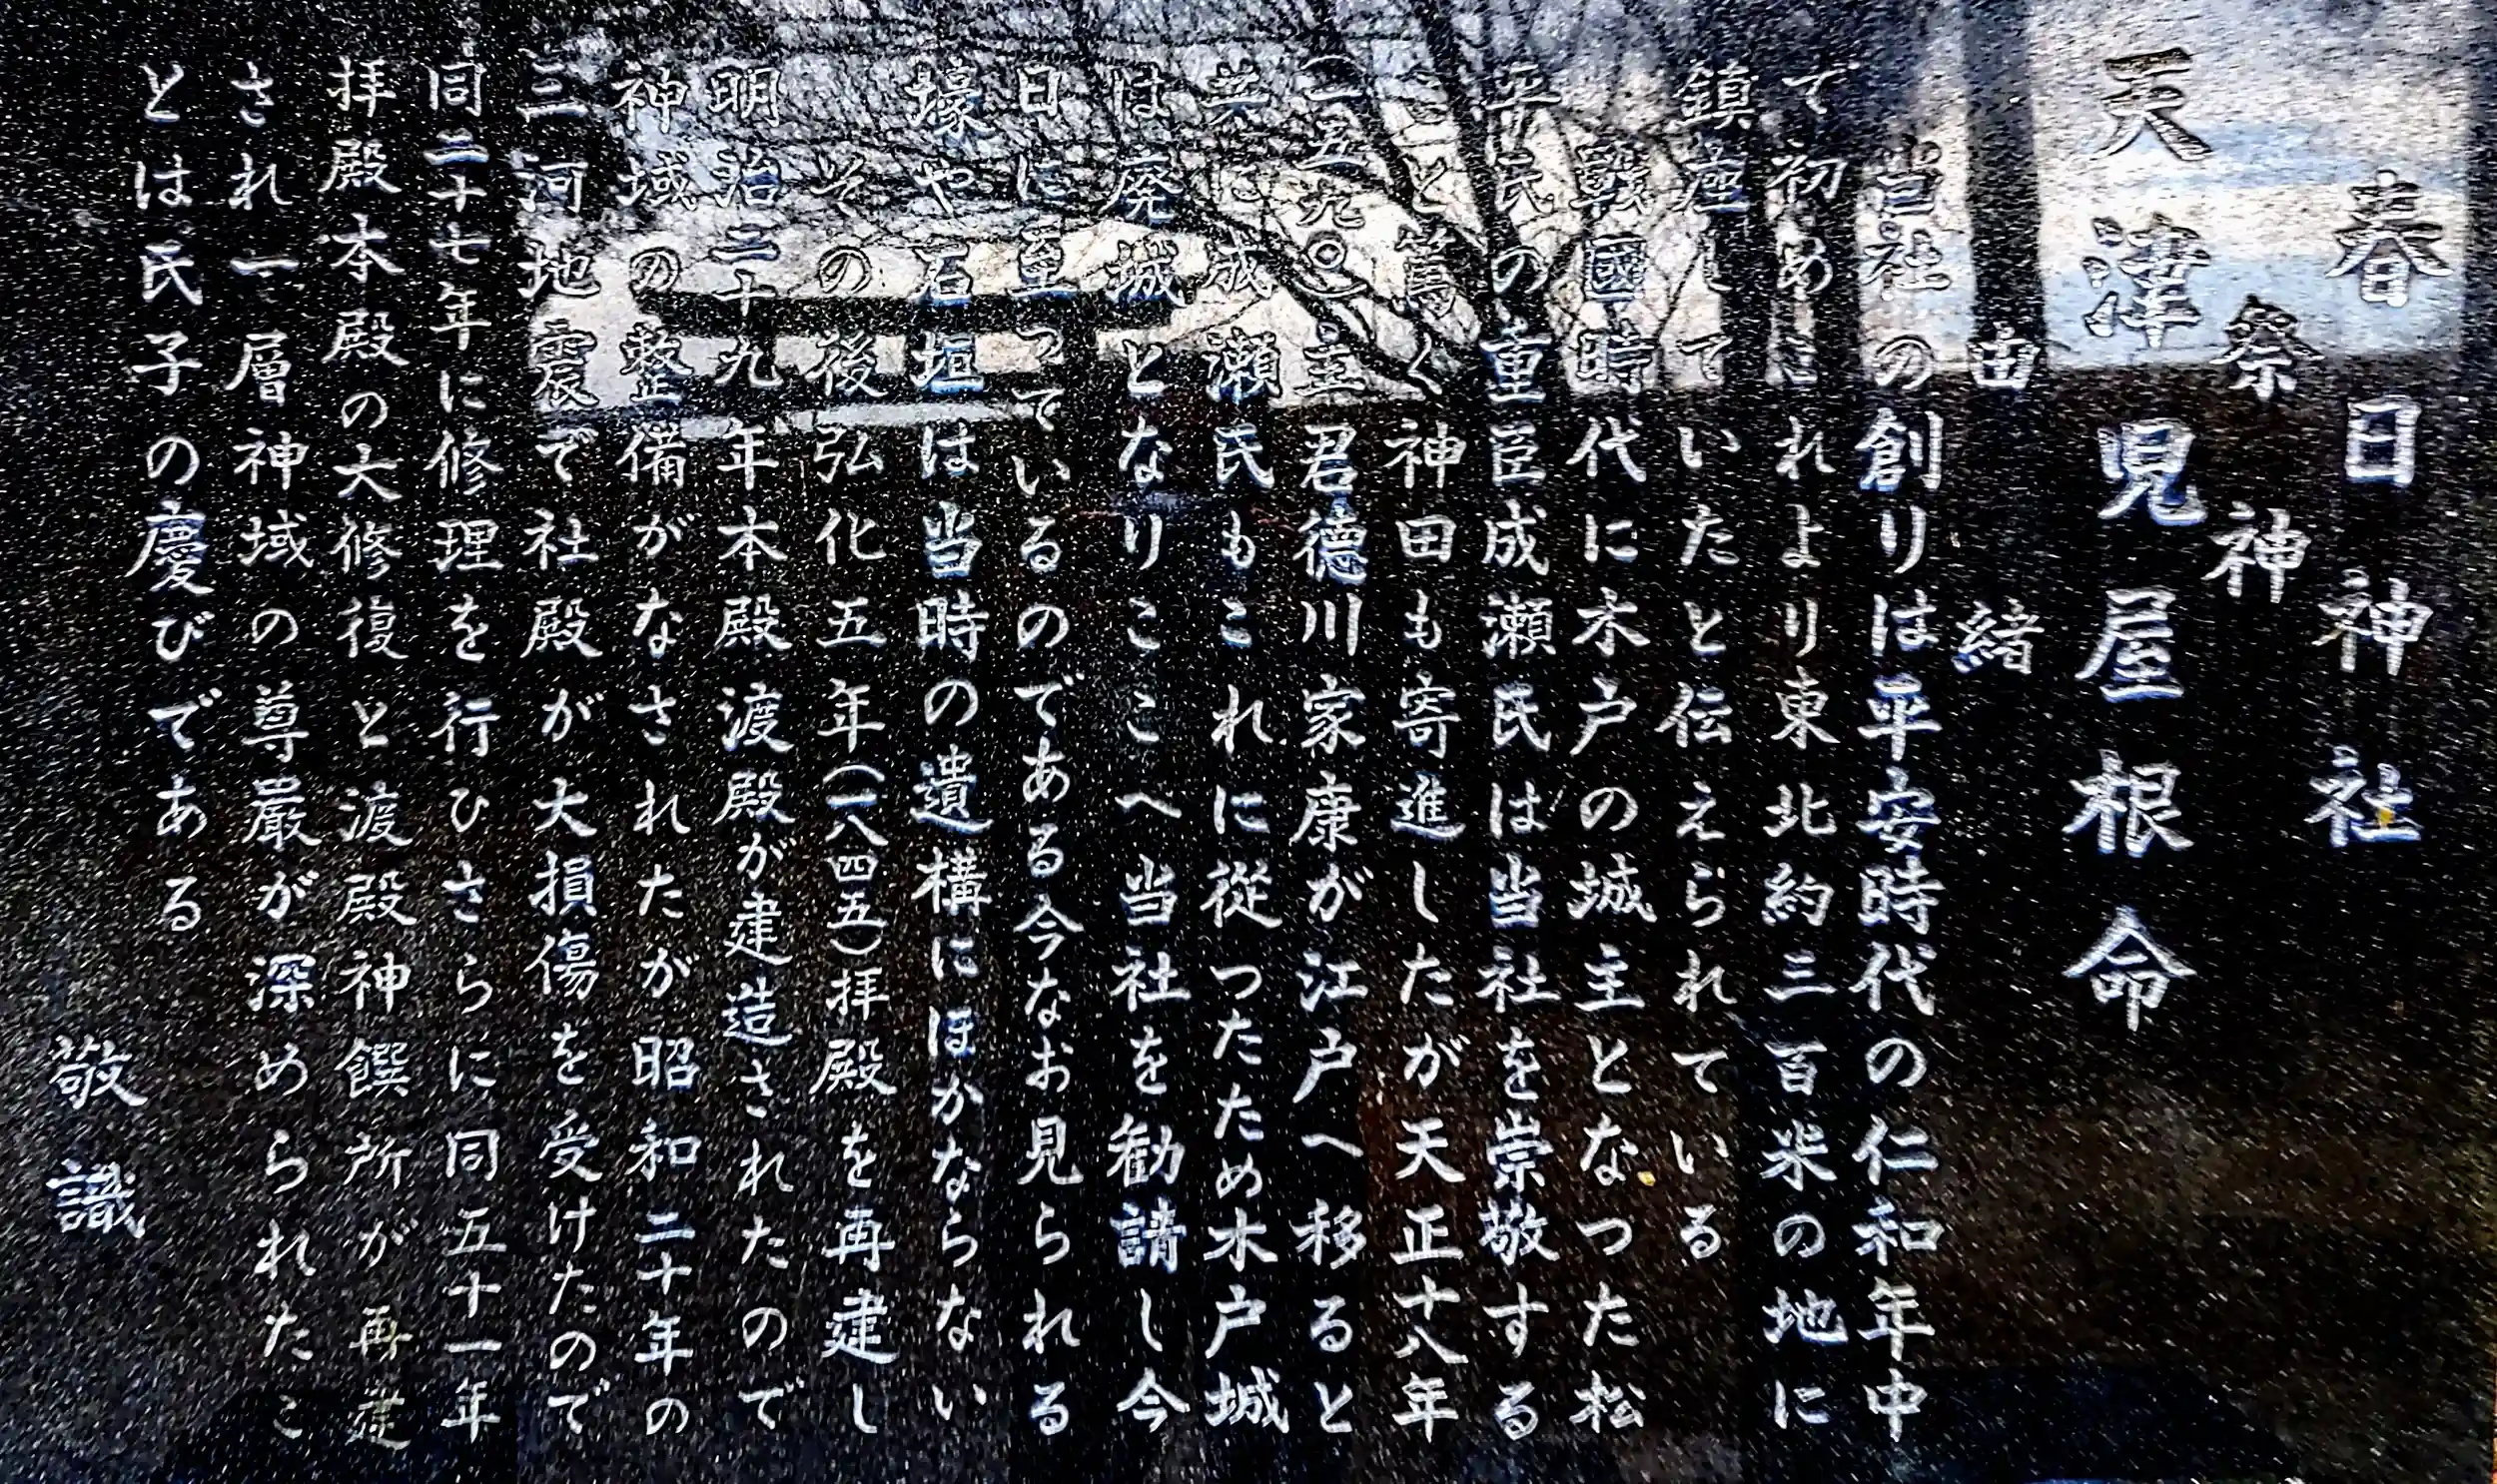 春日神社
祭神
天津児屋根命
由緒
当社の創りは平安時代の仁和年中
て初めこれより東北約三百米の地に
鎮座していたと伝えられている
戦國時代に木戸の城主となつた松
平氏の重臣成瀬氏は当社を崇敬する
こと篤く神田も寄進したが天正十八年
(一五九〇)主君德川家康が江戸へ移ると
共に成瀬氏もこれに從つたため木戸城
は廃城となりここへ当社を勧請し今
日に至っているのである今なお見られる
壕や石垣は当時の遺構にほかならない
その後弘化五年(一八四五)拝殿を再建し
明治二十九年本殿渡殿が建造されたので
神域の整備がなされたが昭和二十年の
三河地震で社殿が大損傷を受けたので
同二十七年に修理を行ひさらに同五十一年
拝殿本殿の大修復と渡殿神饌所が再建
され一層神域の尊厳が深められたこ
とは氏子の慶びである
敬識